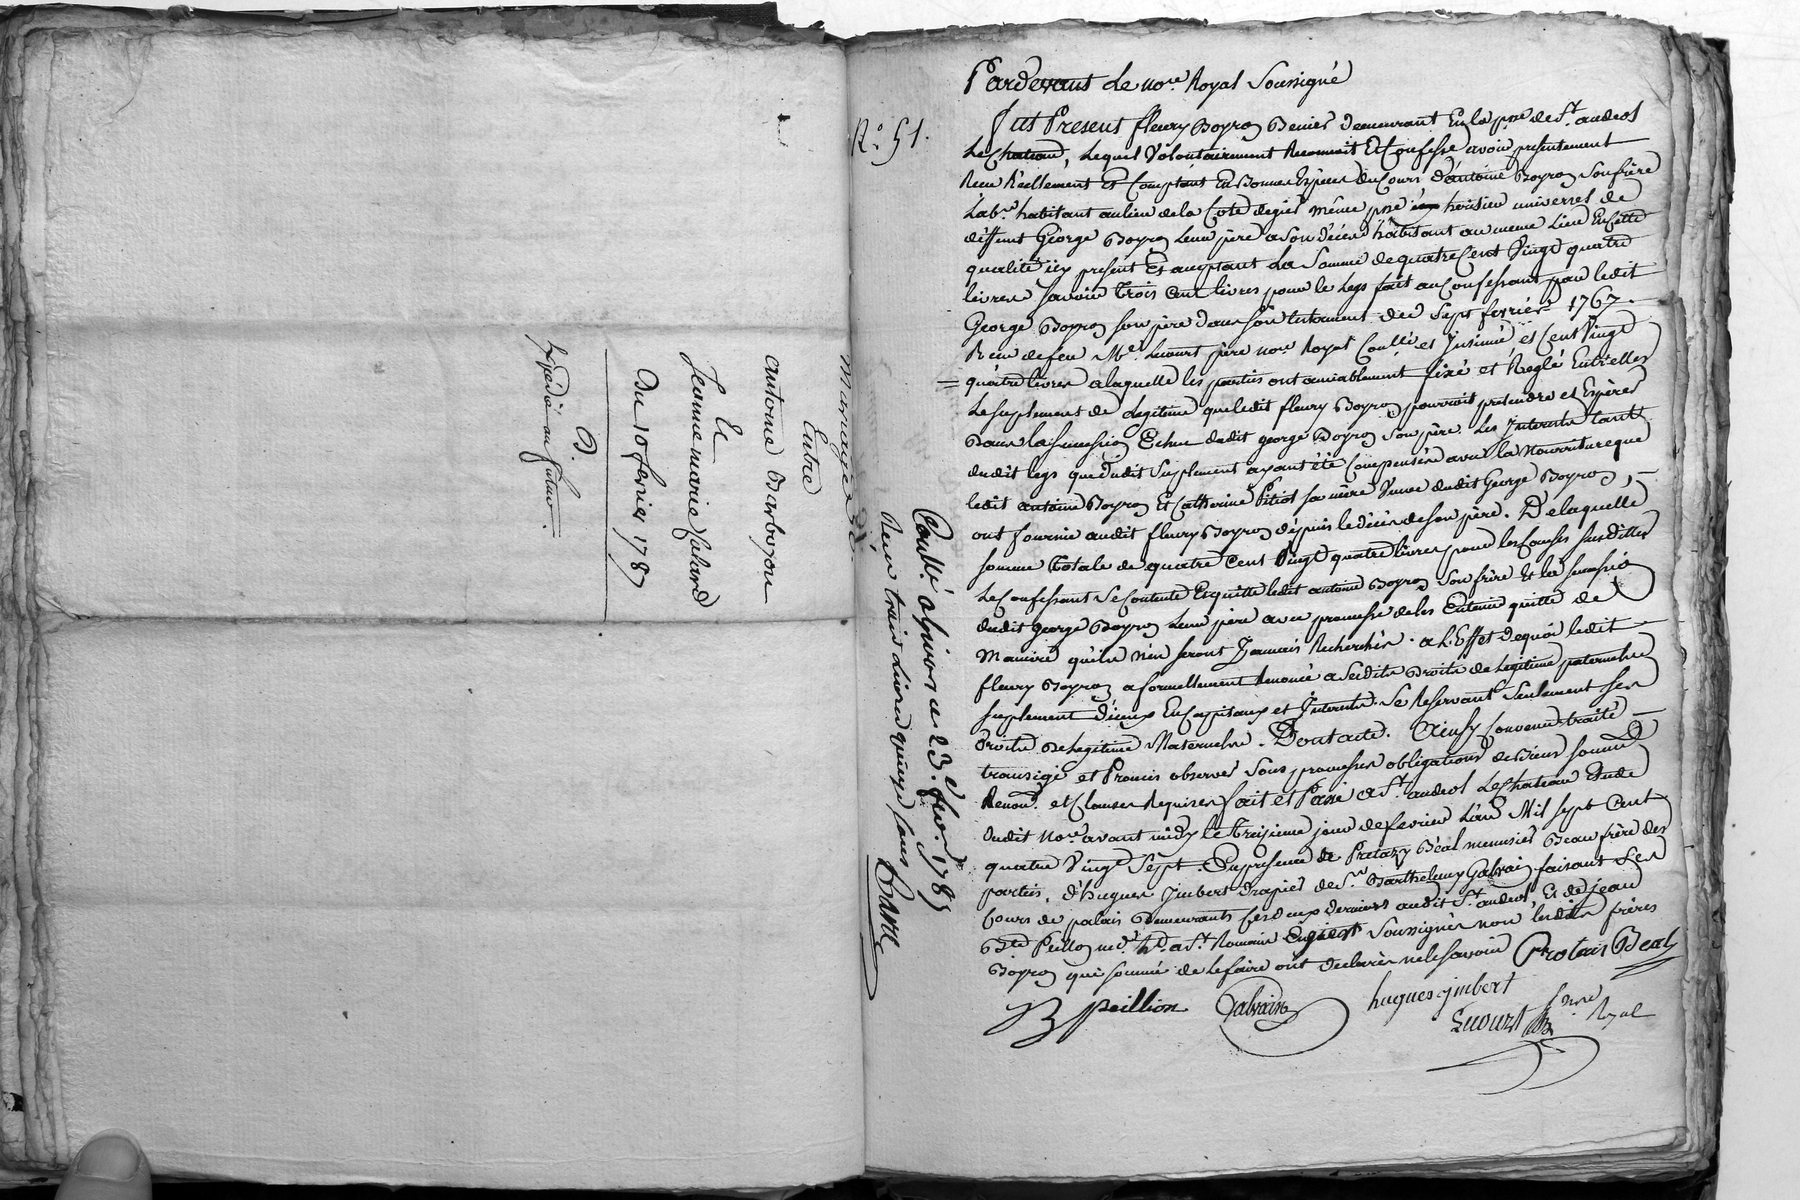 Mariage
Entre
antoine Barboyon
Et
Jeanne marie Valard
Du 10 fevrier 1787
D.
Expedié au futur.
N.º 51.
Pardevant Le no.re Royal Soussigné
fut Present fleury Boyron Demeurant En la p.sse de S.t andeol
Le Chateau, Lequel Volontairement Reconnoit Et Confesse avoir presentement
Receu Réellement Et Comptant En Bonnes Especes du Cours d'antoine Boyron Son frère
Lab.r habitant au lieu de la Cote de gier même p.sse heritier universel de
déffunt George Boyron Leur père a Son décès habitant au meme Lieu En cette
qualité icy present Et acceptant La Somme de quatre Cent Vingt quatre
livres Savoir trois Cent livres pour le Legs fait au Confessant par ledit
George Boyron Son père dans Son testament du Sept fevrier 1767.
Receu de feu M.e Lucourt père no.re Royal Conllé et Insinué, et Cent Vingt
quatre livres a laquelle les parties ont amiablement fixé et Reglé Entr'elles
Le Suplement de Legitime que ledit fleury Boyron pourroit pretendre et Esperer
Dans la Succession Echue dudit george Boyron Son père. Les Interets tant
dudit legs que dudit Suplement ayant été Compensés avec la Nourriture que
ledit antoine Boyron Et Catherine Pitiot Sa mère Veuve dudit George Boyron,
ont fournie audit fleury Boyron depuis le décès de Son père. De laquelle
Somme totale de quatre Cent Vingt quatre livres pour les Causes Susdittes
Le Confessant Se Contente Et quitte ledit antoine Boyron Son frère Et la Succession
dudit George Boyron Leur père avec promesse de les En tenir quitte de
Maniere qu'ils n'en Seront Jamais Recherchés. a L'Effet de quoi ledit
fleury Boyron a formellement Renoncé a Sesdits Droits de Legitime paternelle
Suplement d'iceux En Capitaux et Interets. Se Reservant Seulement Ses
Droits De Legitime Maternelle. Dont acte. Ainsy Convenu traité
transigé et Promis observer Sous promesses obligations de Biens Soumis.
Renon.s et Clauses Requises fait et Passé a S.t andeol Le Chateau Etude
dudit No.re avant midy le treizieme jour de fevrier L'an Mil Sept Cent
quatre Vingt Sept. En presence de Protazy Béal menuisier Beau frère des
parties, d'hugues Jmbert Drapier de S.r Barthelemy Galvain faisant Ses
Cours de palais Demeurants Ces deux derniers audit S.t andeol, Et de jean
B.te Peillon m.d h.t a S.t Romain En gier Soussignés non lesdits frères
Boyron qui Sommé de Le faire ont declarés ne le Savoir Protais Beal
B peillion Galvain hugues jmbert
Lucourt no.re Royal
Conllé a givors ce 23.e fev.r 1787
Recu trois livres quinze Sous